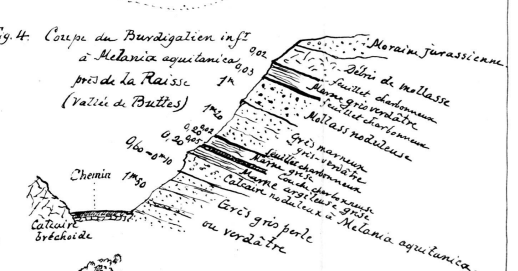 Fig. 4. Coupe du Burdigalien inf.r
à Melania aquitanica
près de La Raisse
(Vallée de Buttes)
0,02
0,03
1m
1m20
0,20
0,02
0,20
0,05
0,60-0m10
1m50
Moraine jurassienne
Débris de mollasse
feuillet charbonneux
Marne gris verdâtre
feuillet charbonneux
Mollass noduleuse
Grès marneux
gris-verdâtre
feuillet charbonneux
Marne grise
Couche charbonneuse
Marne argileuse grise
Calcaire noduleux à Melania aquitanica.
Grès gris perle
ou verdâtre
Chemin
Calcaire
bréchoïde